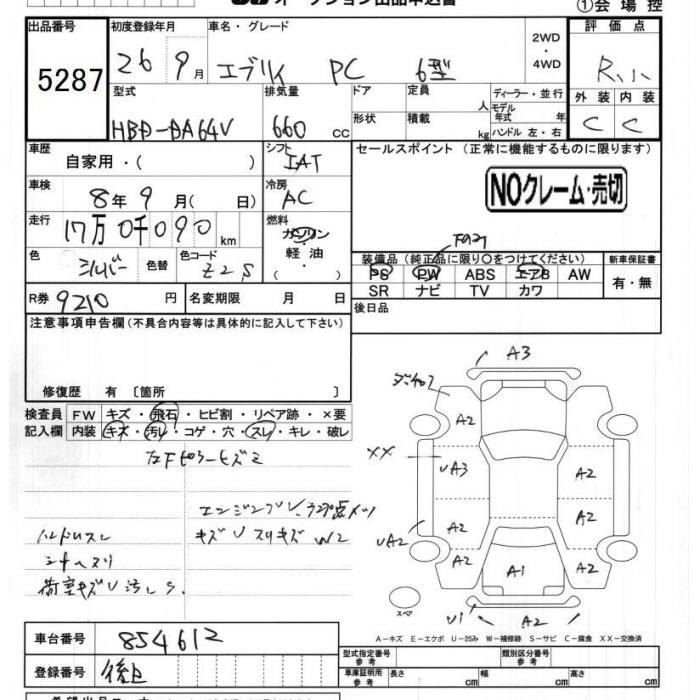 オークション出品申込書
①会場控
出品番号 初度登録年月 車名・グレード 評価点
5287 26 9月 エブリイ PC 6型 2WD ・ 4WD R
型式 排気量 ドア 定員 人 ディーラー・並行 外装 内装
HBD-DA64V 660 cc 形状 積載 kg モデル年式 年 ハンドル 左・右 C C
車歴 自家用・( ) シフト IAT セールスポイント (正常に機能するものに限ります)
車検 8年9月( 日) 冷房 AC NOクレーム・売切
走行 17万0千090km 燃料 ガソリン・軽油
色 シルバー 色替 色コード Z2S 装備品(純正品に限り○をつけてください) 新車保証書
PS PW ABS エアB AW 有・無
SR ナビ TV カワ
R券 9210円 名変期限 月 日 後日品
注意事項申告欄(不具合内容等は具体的に記入して下さい)
修復歴 有 〔箇所 〕
検査員 FW キズ・飛石・ヒビ割・リペア跡・×要
記入欄 内装 キズ・汚レ・コゲ・穴・スレ・キレ・破レ
A3
A2
XX UA3 A2
A2 A2
UA2
A2 A1 A2
スペア
U1 A2
ハンドルスレ
キズU スリキズ W2
荷室キズU汚レS
A-キズ E-エクボ U-凹み W-補修跡 S-サビ C-腐食 XX-交換済
車台番号 854612
登録番号 後日
型式指定番号 参考 類別区分番号 参考
車庫証明用 参考 長さ cm 幅 cm 高さ cm